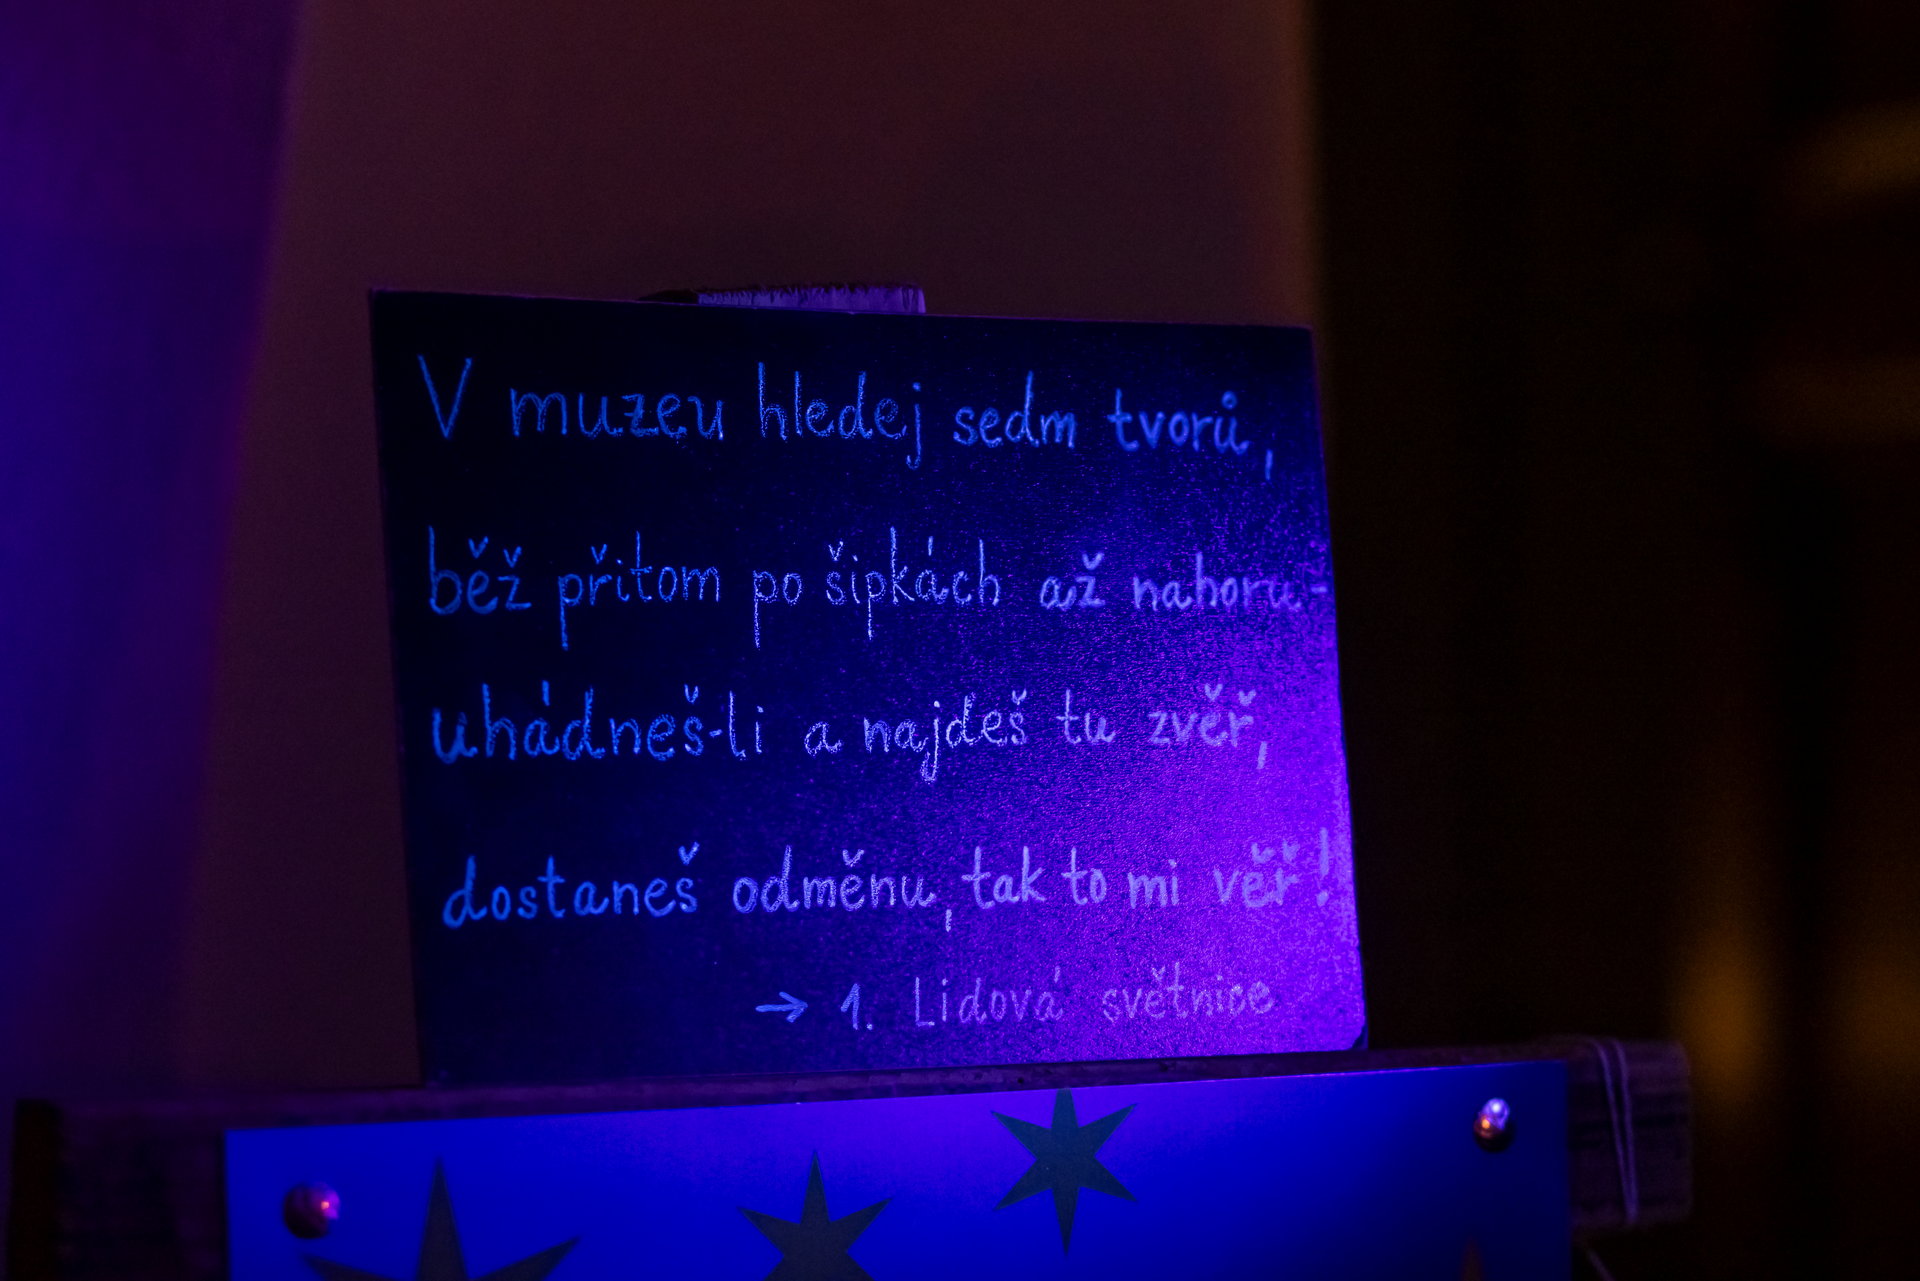 V muzeu hledej sedm tvorů,
běž přitom po šipkách až nahoru -
uhádneš-li a najdeš tu zvěř,
dostaneš odměnu, tak to mi věř!
→ 1. Lidová světnice